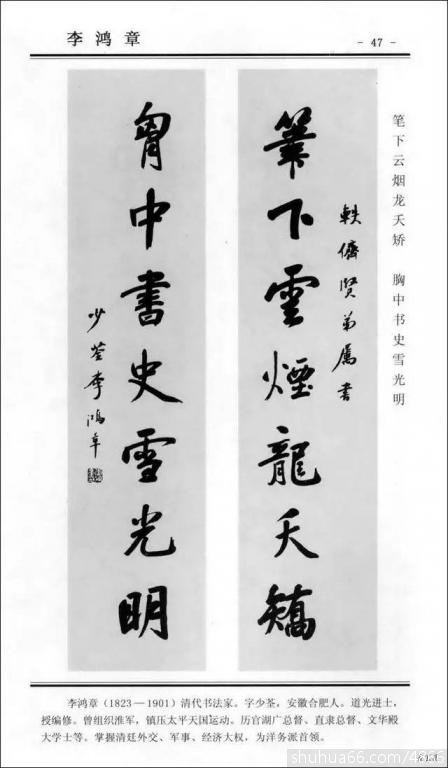 李鸿章
- 47 -
笔下云烟龙夭矫　胸中书史雪光明
軼儕賢弟屬書
筆下雲煙龍夭矯
胷中書史雪光明
少荃李鴻章
李鸿章（1823—1901）清代书法家。字少荃，安徽合肥人。道光进士，
授编修。曾组织淮军，镇压太平天国运动。历官湖广总督、直隶总督、文华殿
大学士等。掌握清廷外交、军事、经济大权，为洋务派首领。